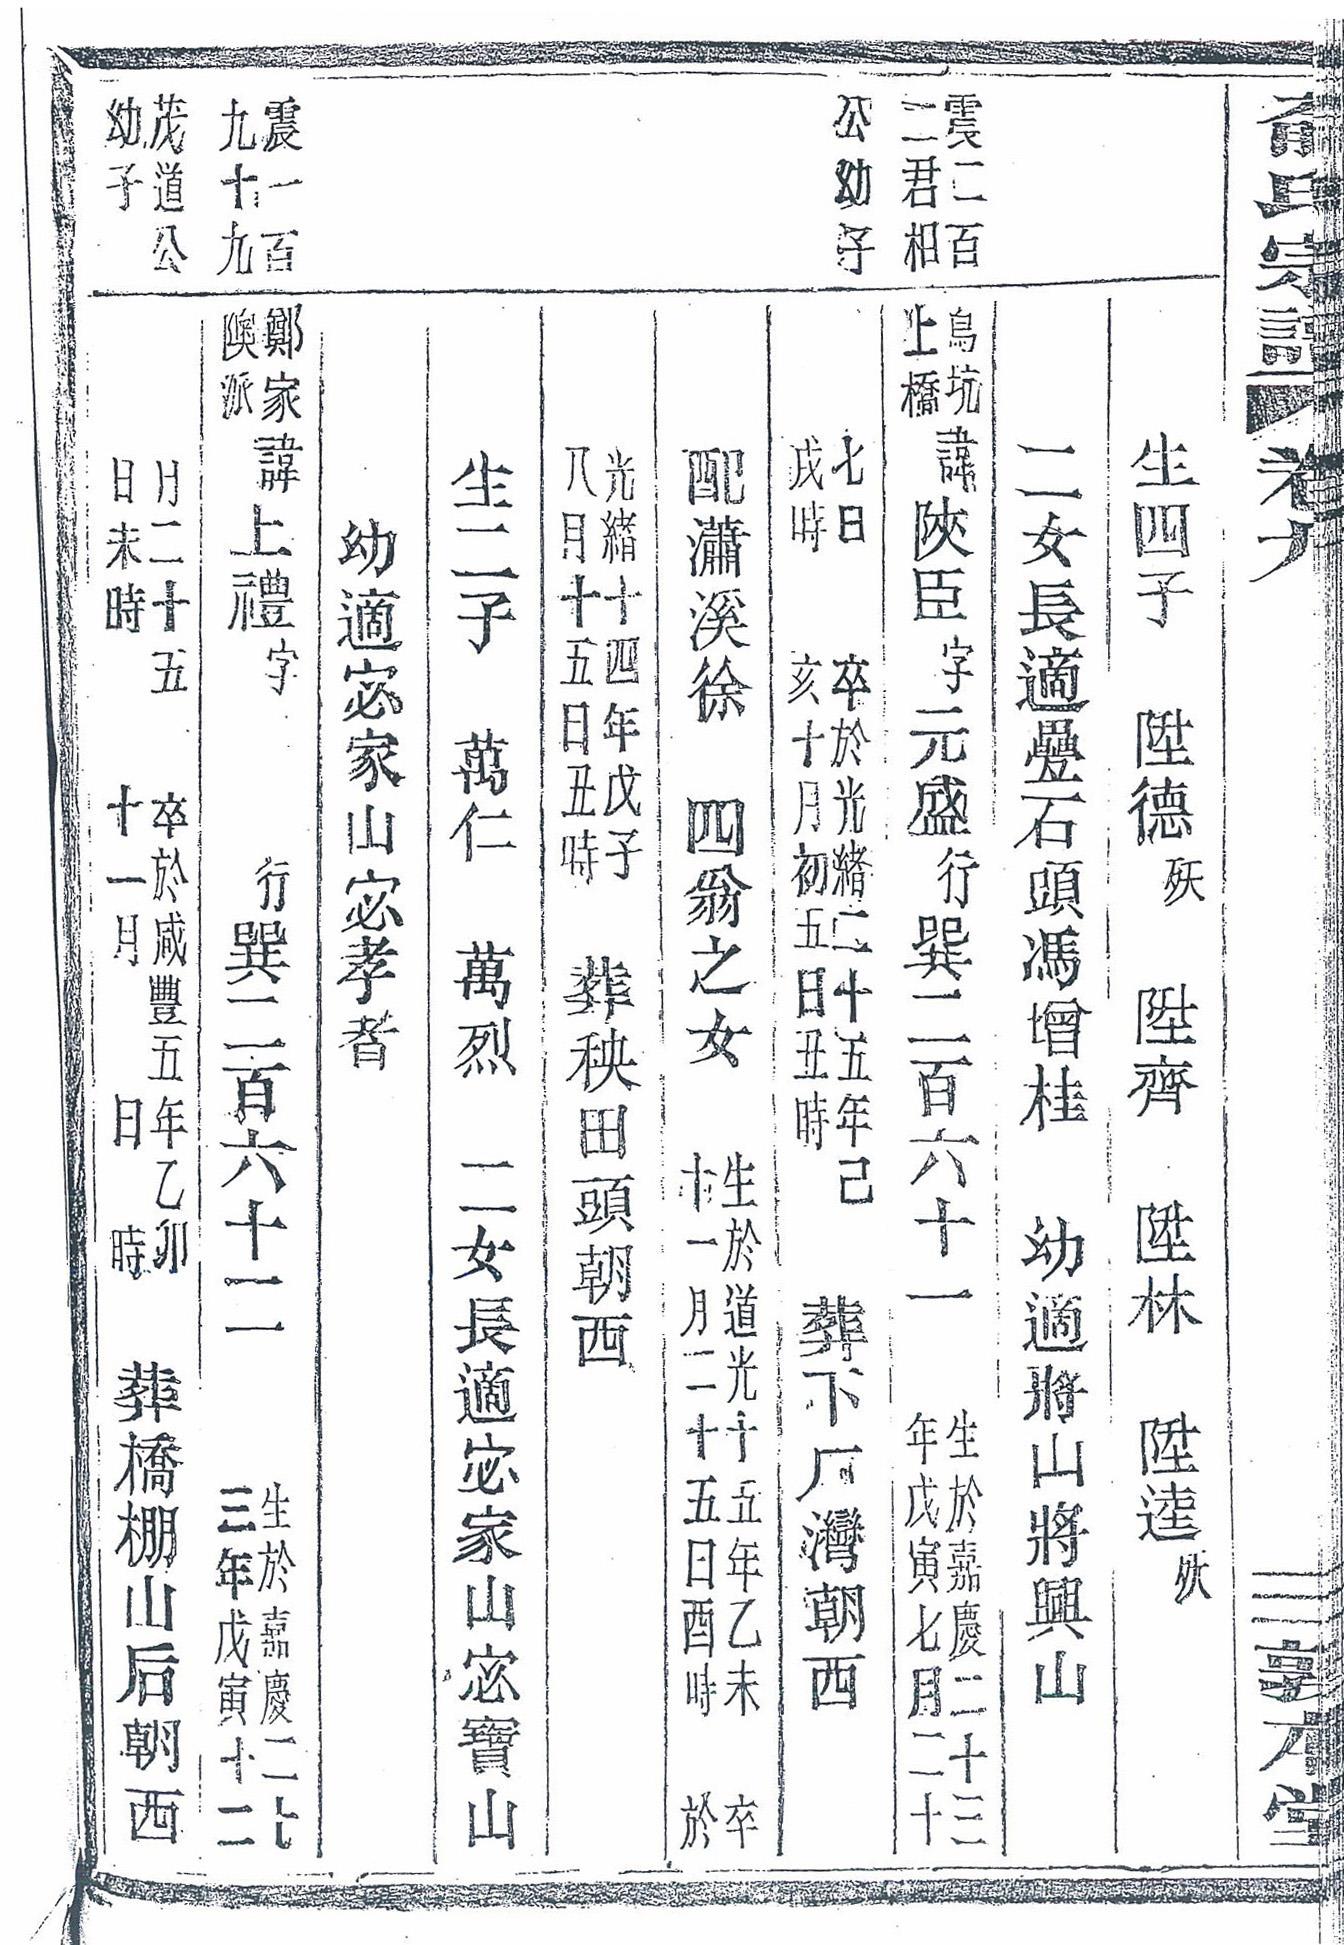 氏宗譜 卷九 三 敦本堂
生四子 陞德殀 陞齊 陞林 陞逵殀
二女長適疊石頭馮增桂 幼適將山將興山
震二百
二君相
公幼子
烏坑
上橋
諱陝臣字元盛行巽二百六十一 生於嘉慶二十三
年戊寅七月二十
七日
戌時
卒於光緒二十五年己
亥十月初五日丑時
葬下厂灣朝西
配瀟溪徐 四翁之女 生於道光十五年乙未
十一月二十五日酉時 卒
於
光緒十四年戊子
八月十五日丑時
葬秧田頭朝西
生二子 萬仁 萬烈 二女長適宓家山宓寶山
幼適宓家山宓孝者
震一百
九十九
茂道公
幼子
鄭家
隩派
諱上禮字 行巽二百六十二 生於嘉慶二十
三年戊寅十二
月二十五
日未時
卒於咸豐五年乙卯
十一月 日 時
葬橋棚山后朝西